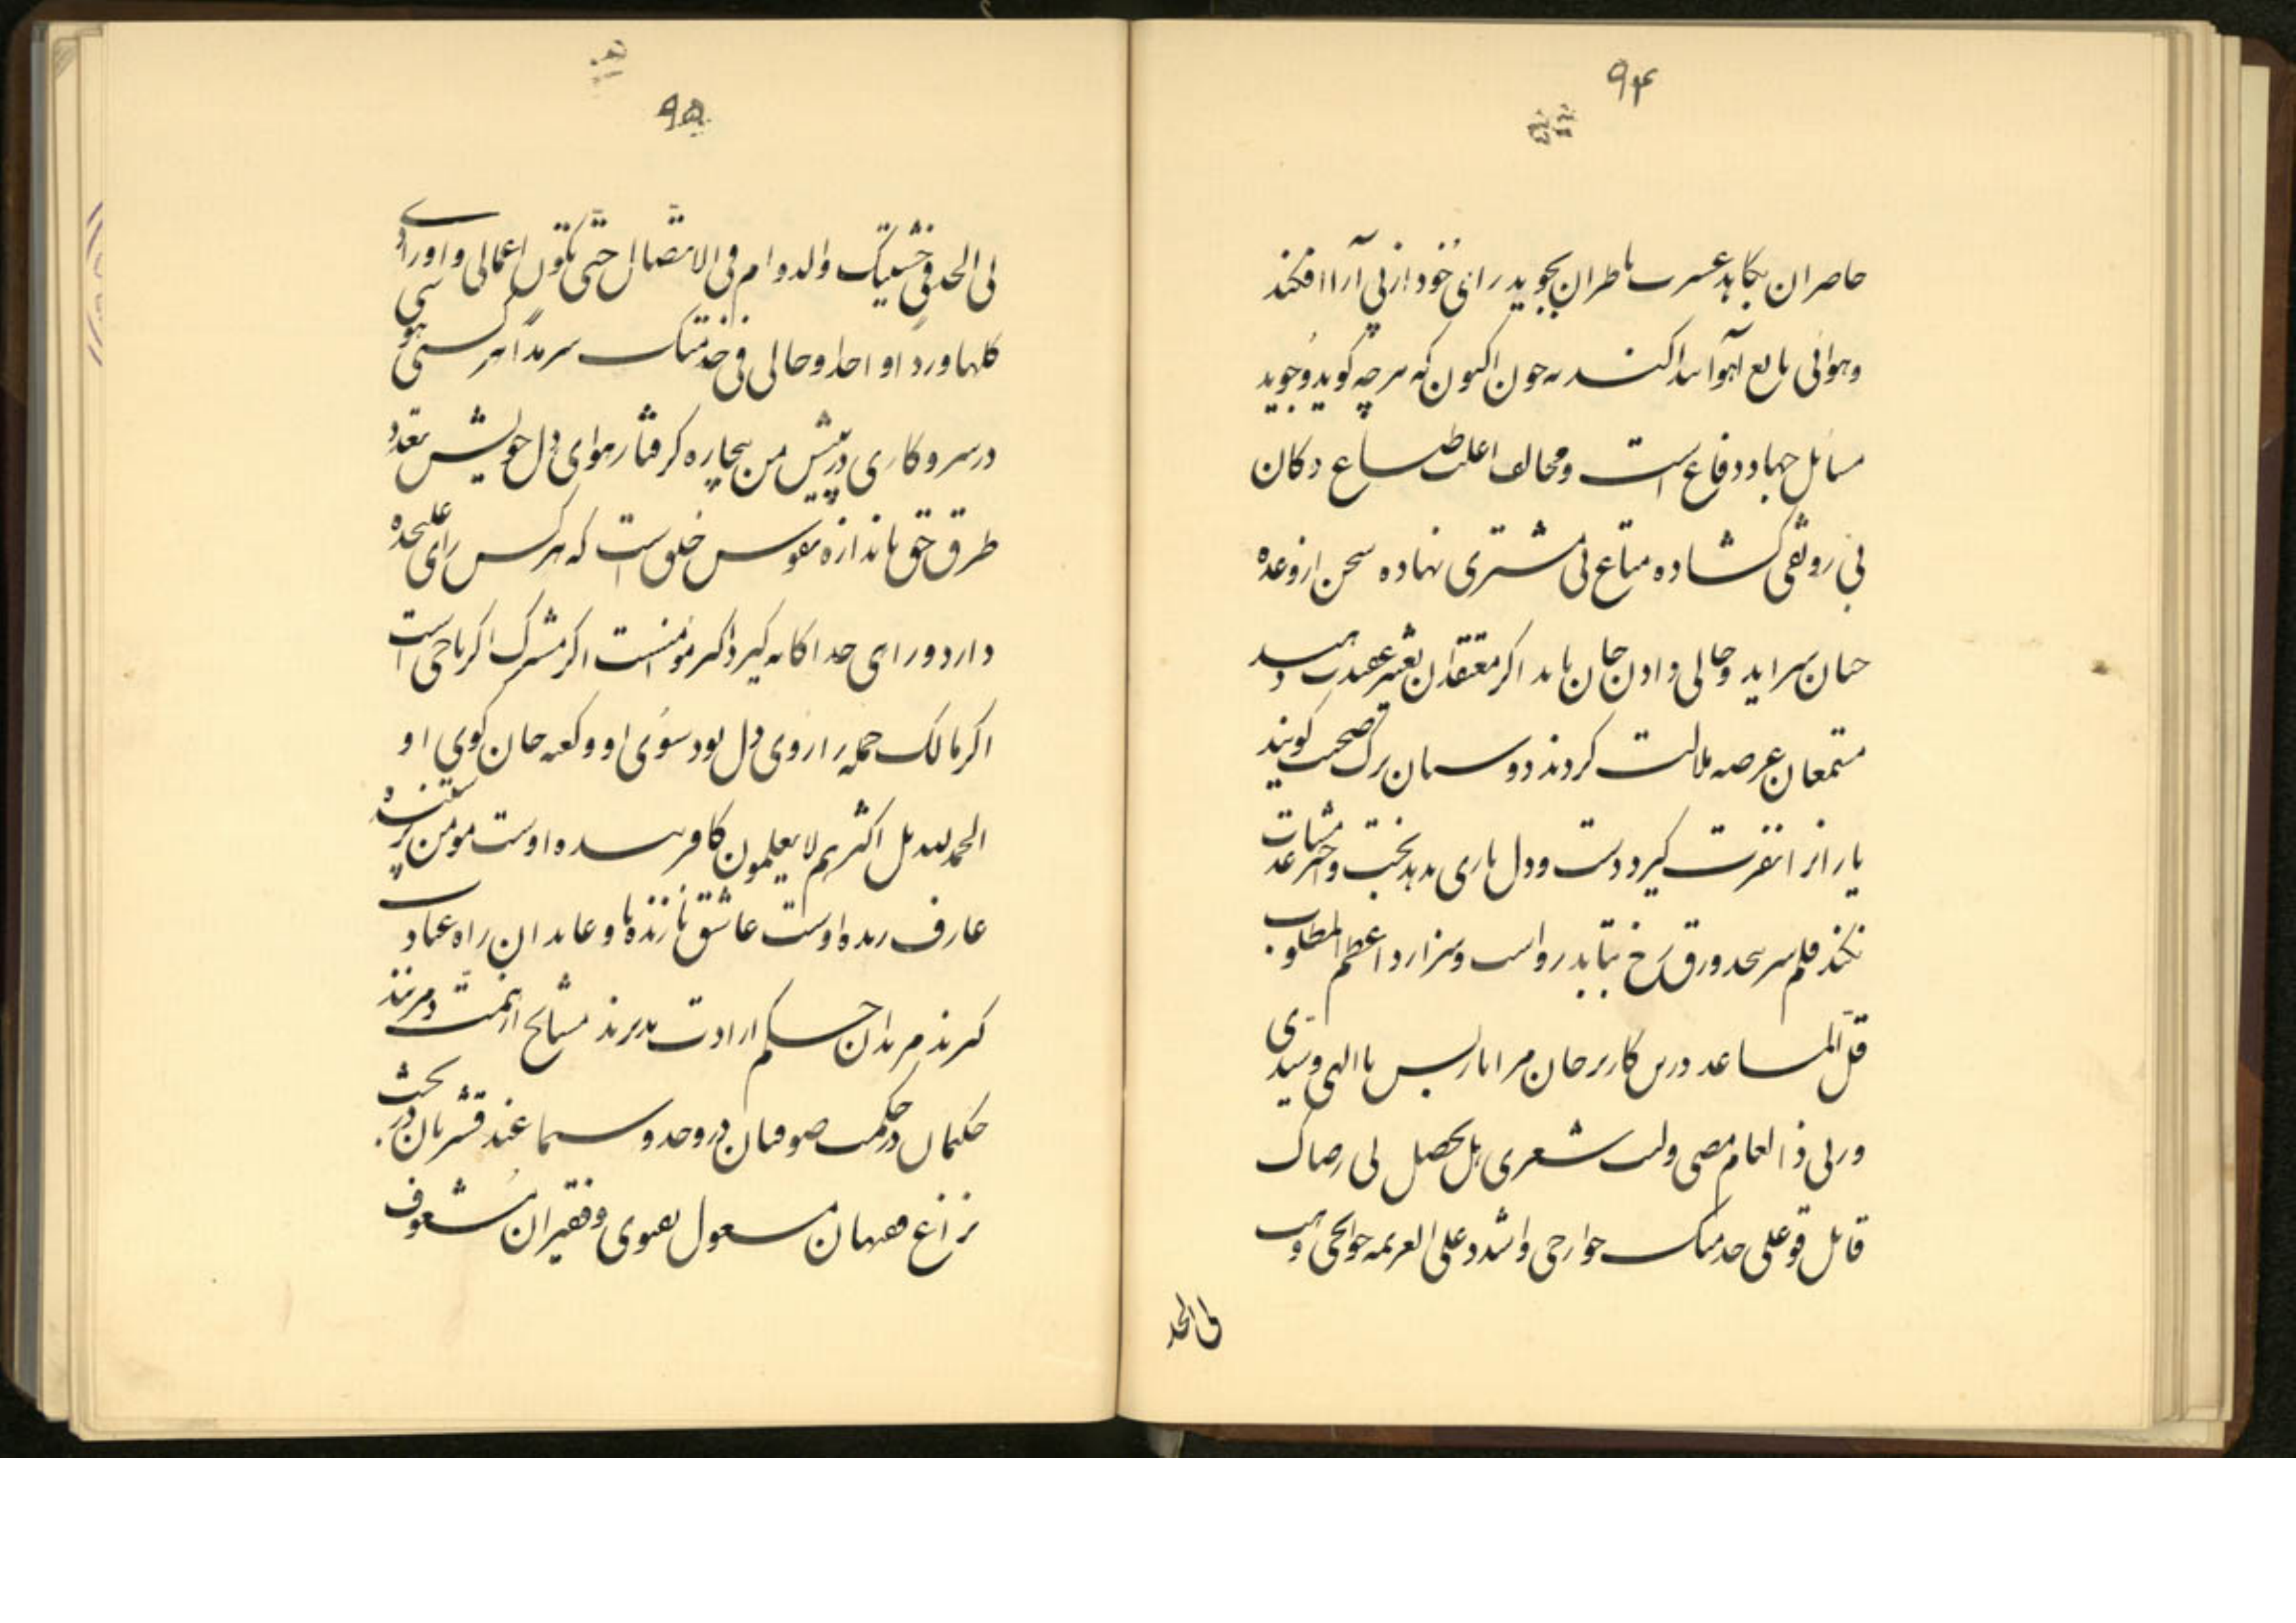 ۹۴
حاصران بکاهد عسرت ناظران بجوید رانی خود از پی آراا فکند
وهوائی تابع اهوا پیدا کند نه چون اکنون که هرچه کوید و جوید
مسائل جهاد و دفاع است و مخالف اغلب طباع دکان
بی رونقی کشاده متاع بی مشتری نهاده سخن از وعده
جنان سراید و حالی دادن جان باید اکر معتقدان تغییر عقیدت دهند
مستمعان عرصه ملالت کردند دوستان ترک صحبت کویند
یارانرا نفرت کیرد دست و دل یاری ندهد بخت و اختر مساعدت
نکند قلم سر پیچد ورق رخ بتابد رواست و سزا اذا عظم المطلوب
قل المساعد درین کار بر جان مرا یار بس یا الهی و سیدی
وربی ذا لعام مضی ولیت شعری هل یحصل لی رضاک
قابل قو علی خدمتک جوارحی واشدد علی العزیمه جوانحی وهب
لی الجد
۹۵
لی الجد فی خشیتک والدوام فی الاتصال حتی تکون اعمالی و اورادی
کلها وردا واحدا وحالی فی خدمتک سرمدا هر کسی هوسی
در سر و کاری در پیش من بیچاره کرفتار هوای دل خویش تعدد
طرق حق باندازه نفوس خلق است که هر کس رای علیحده
دارد و رای جداکانه کیرد اکر مؤمنست اکر مشرک اکر ناجی است
اکر هالک جمله را روی دل بود سوی او و کعبه جان کوی او
الحمد لله بل اکثرهم لا یعلمون کافر بنده اوست مومن پرستنده
عارف زنده اوست عاشق نازنده ها و عابدان راه عبادت
کیرند مریدان حکم ارادت پذیرند مشایخ از همت دم زنند
حکیمان در حکمت صوفیان در وجد و سماعند قشریان در بحث
نزاع فقیهان مشغول بفتوی و فقیران مشعوف